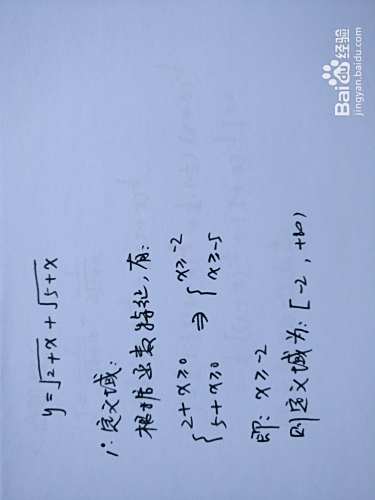 y=√(2+x)+√(5+x)
1°定义域:
根据函数特征,有:
{2+x≥0 5+x≥0 ⇒ {x≥-2 x≥-5
即: x≥-2
则定义域为:[-2,+∞)
Baidu经验
jingyan.baidu.com